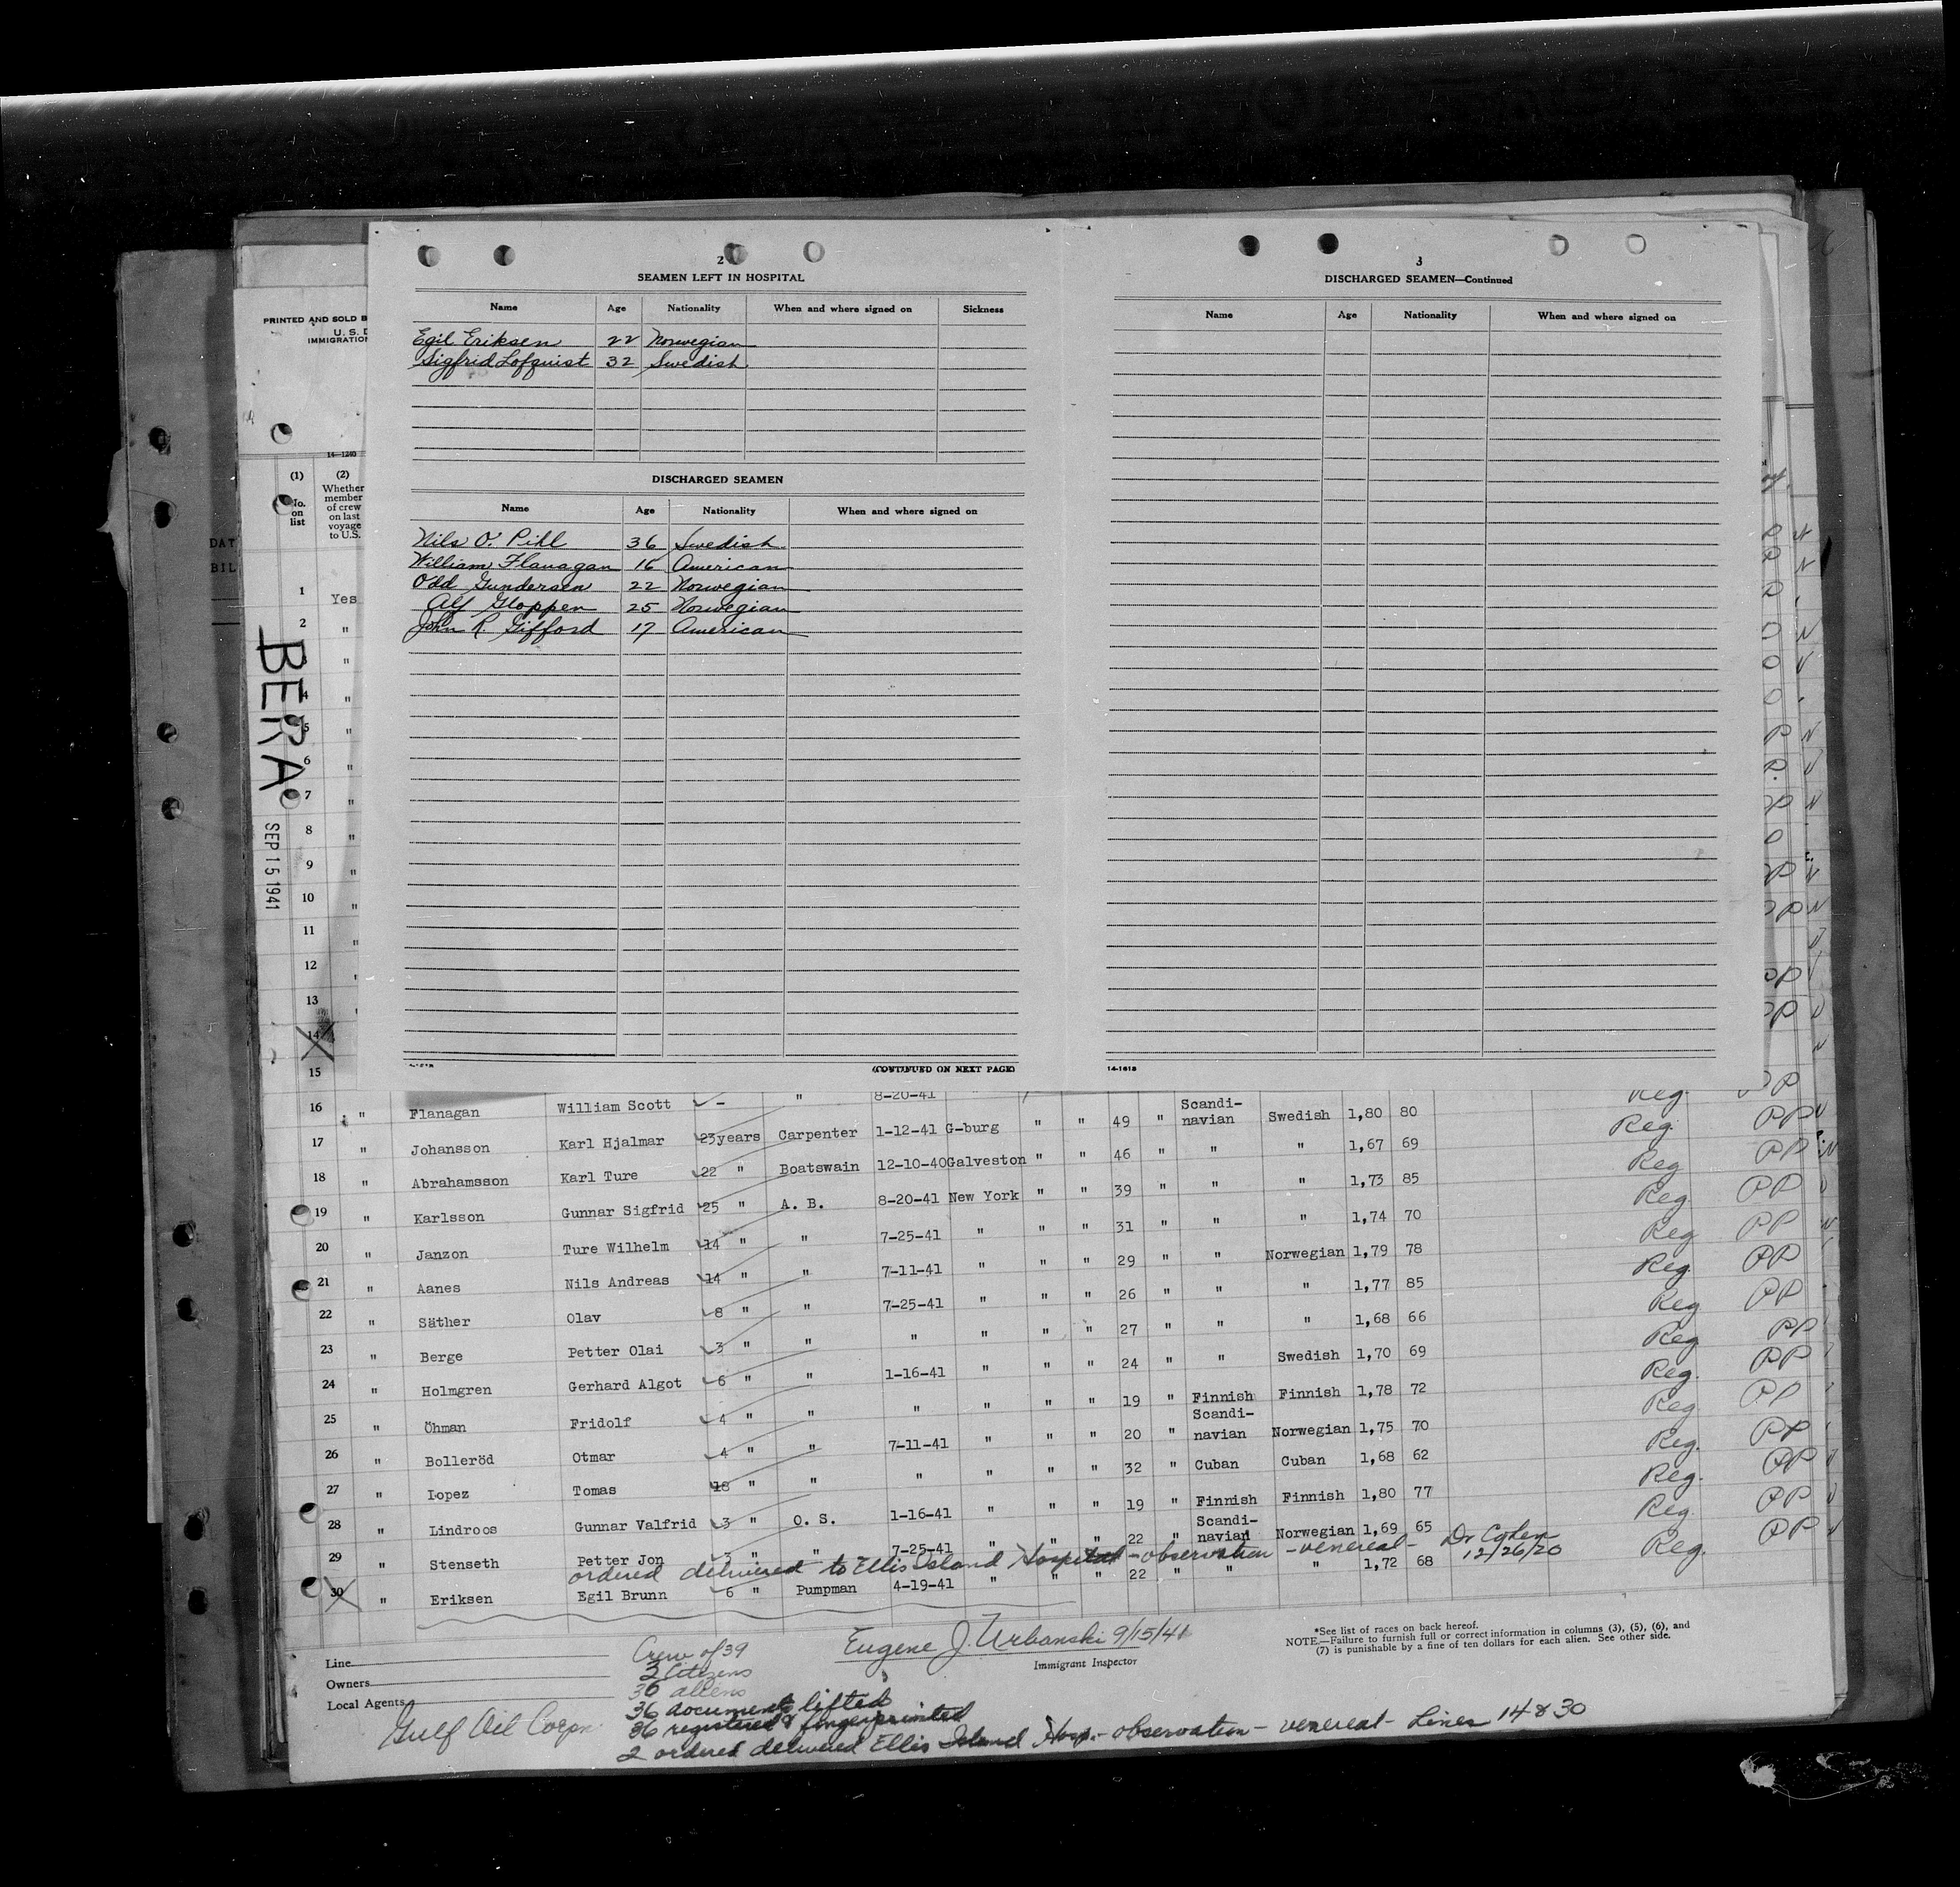 2
SEAMEN LEFT IN HOSPITAL
Name Age Nationality When and where signed on Sickness
Egil Eriksen 22 Norwegian
Sigfrid Lofquist 32 Swedish
DISCHARGED SEAMEN
Name Age Nationality When and where signed on
Nils O. Pihl 36 Swedish
William Flanagan 16 American
Odd Gundersen 22 Norwegian
Alf Gloppen 25 Norwegian
John R. Gifford 17 American
(CONTINUED ON NEXT PAGE)
3
DISCHARGED SEAMEN—Continued
Name Age Nationality When and where signed on
14-1618
PRINTED AND SOLD B
U. S. D
IMMIGRATION
14—1240
(1) (2)
No. on list
Whether member of crew on last voyage to U.S.
DAT
BIL
BERA
SEP 15 1941
1 Yes
2 "
"
4 "
5 "
6 "
7 "
8 "
9 "
10 "
11 "
12 "
13 "
14
15
8-20-41 Reg. PP
16 " Flanagan William Scott - " Scandi-
17 " Johansson Karl Hjalmar 23years Carpenter 1-12-41 G-burg " " 49 " navian Swedish 1,80 80 Reg. PP
18 " Abrahamsson Karl Ture 22 " Boatswain 12-10-40 Galveston " " 46 " " " 1,67 69 Reg PP
19 " Karlsson Gunnar Sigfrid 25 " A. B. 8-20-41 New York " " 39 " " " 1,73 85 Reg PP
20 " Janzon Ture Wilhelm 14 " " 7-25-41 " " " 31 " " " 1,74 70 Reg PP
21 " Aanes Nils Andreas 14 " " 7-11-41 " " " 29 " " Norwegian 1,79 78 Reg. PP
22 " Säther Olav 8 " " 7-25-41 " " " 26 " " " 1,77 85 Reg PP
23 " Berge Petter Olai 3 " " " " " " 27 " " " 1,68 66 Reg PP
24 " Holmgren Gerhard Algot 6 " " 1-16-41 " " " 24 " " Swedish 1,70 69 Reg. PP
25 " Öhman Fridolf 4 " " " " " " 19 " Finnish Finnish 1,78 72 Reg PP
Scandi-
26 " Bolleröd Otmar 4 " " 7-11-41 " " " 20 " navian Norwegian 1,75 70 Reg. PP
27 " Lopez Tomas 18 " " " " " " 32 " Cuban Cuban 1,68 62 Reg. PP
28 " Lindroos Gunnar Valfrid 3 " O. S. 1-16-41 " " " 19 " Finnish Finnish 1,80 77 Reg. PP
Scandi-
29 " Stenseth Petter Jon 3 " " 7-25-41 " " " 22 " navian Norwegian 1,69 65 Reg. PP
ordered delivered to Ellis Island Hospital - observation - venereal - Dr Cohen 12/26/20
30 " Eriksen Egil Brunn 6 " Pumpman 4-19-41 " " " 22 " " " 1,72 68
Line
Owners
Local Agents
Gulf Oil Corpn
Crew of 39
3 Citizens
36 aliens
36 documents lifted
36 registered & fingerprinted
2 ordered delivered Ellis Island Hosp. - observation - venereal - Lines 14 & 30
Eugene J. Urbanski 9/15/41
Immigrant Inspector
*See list of races on back hereof.
NOTE.—Failure to furnish full or correct information in columns (3), (5), (6), and
(7) is punishable by a fine of ten dollars for each alien. See other side.